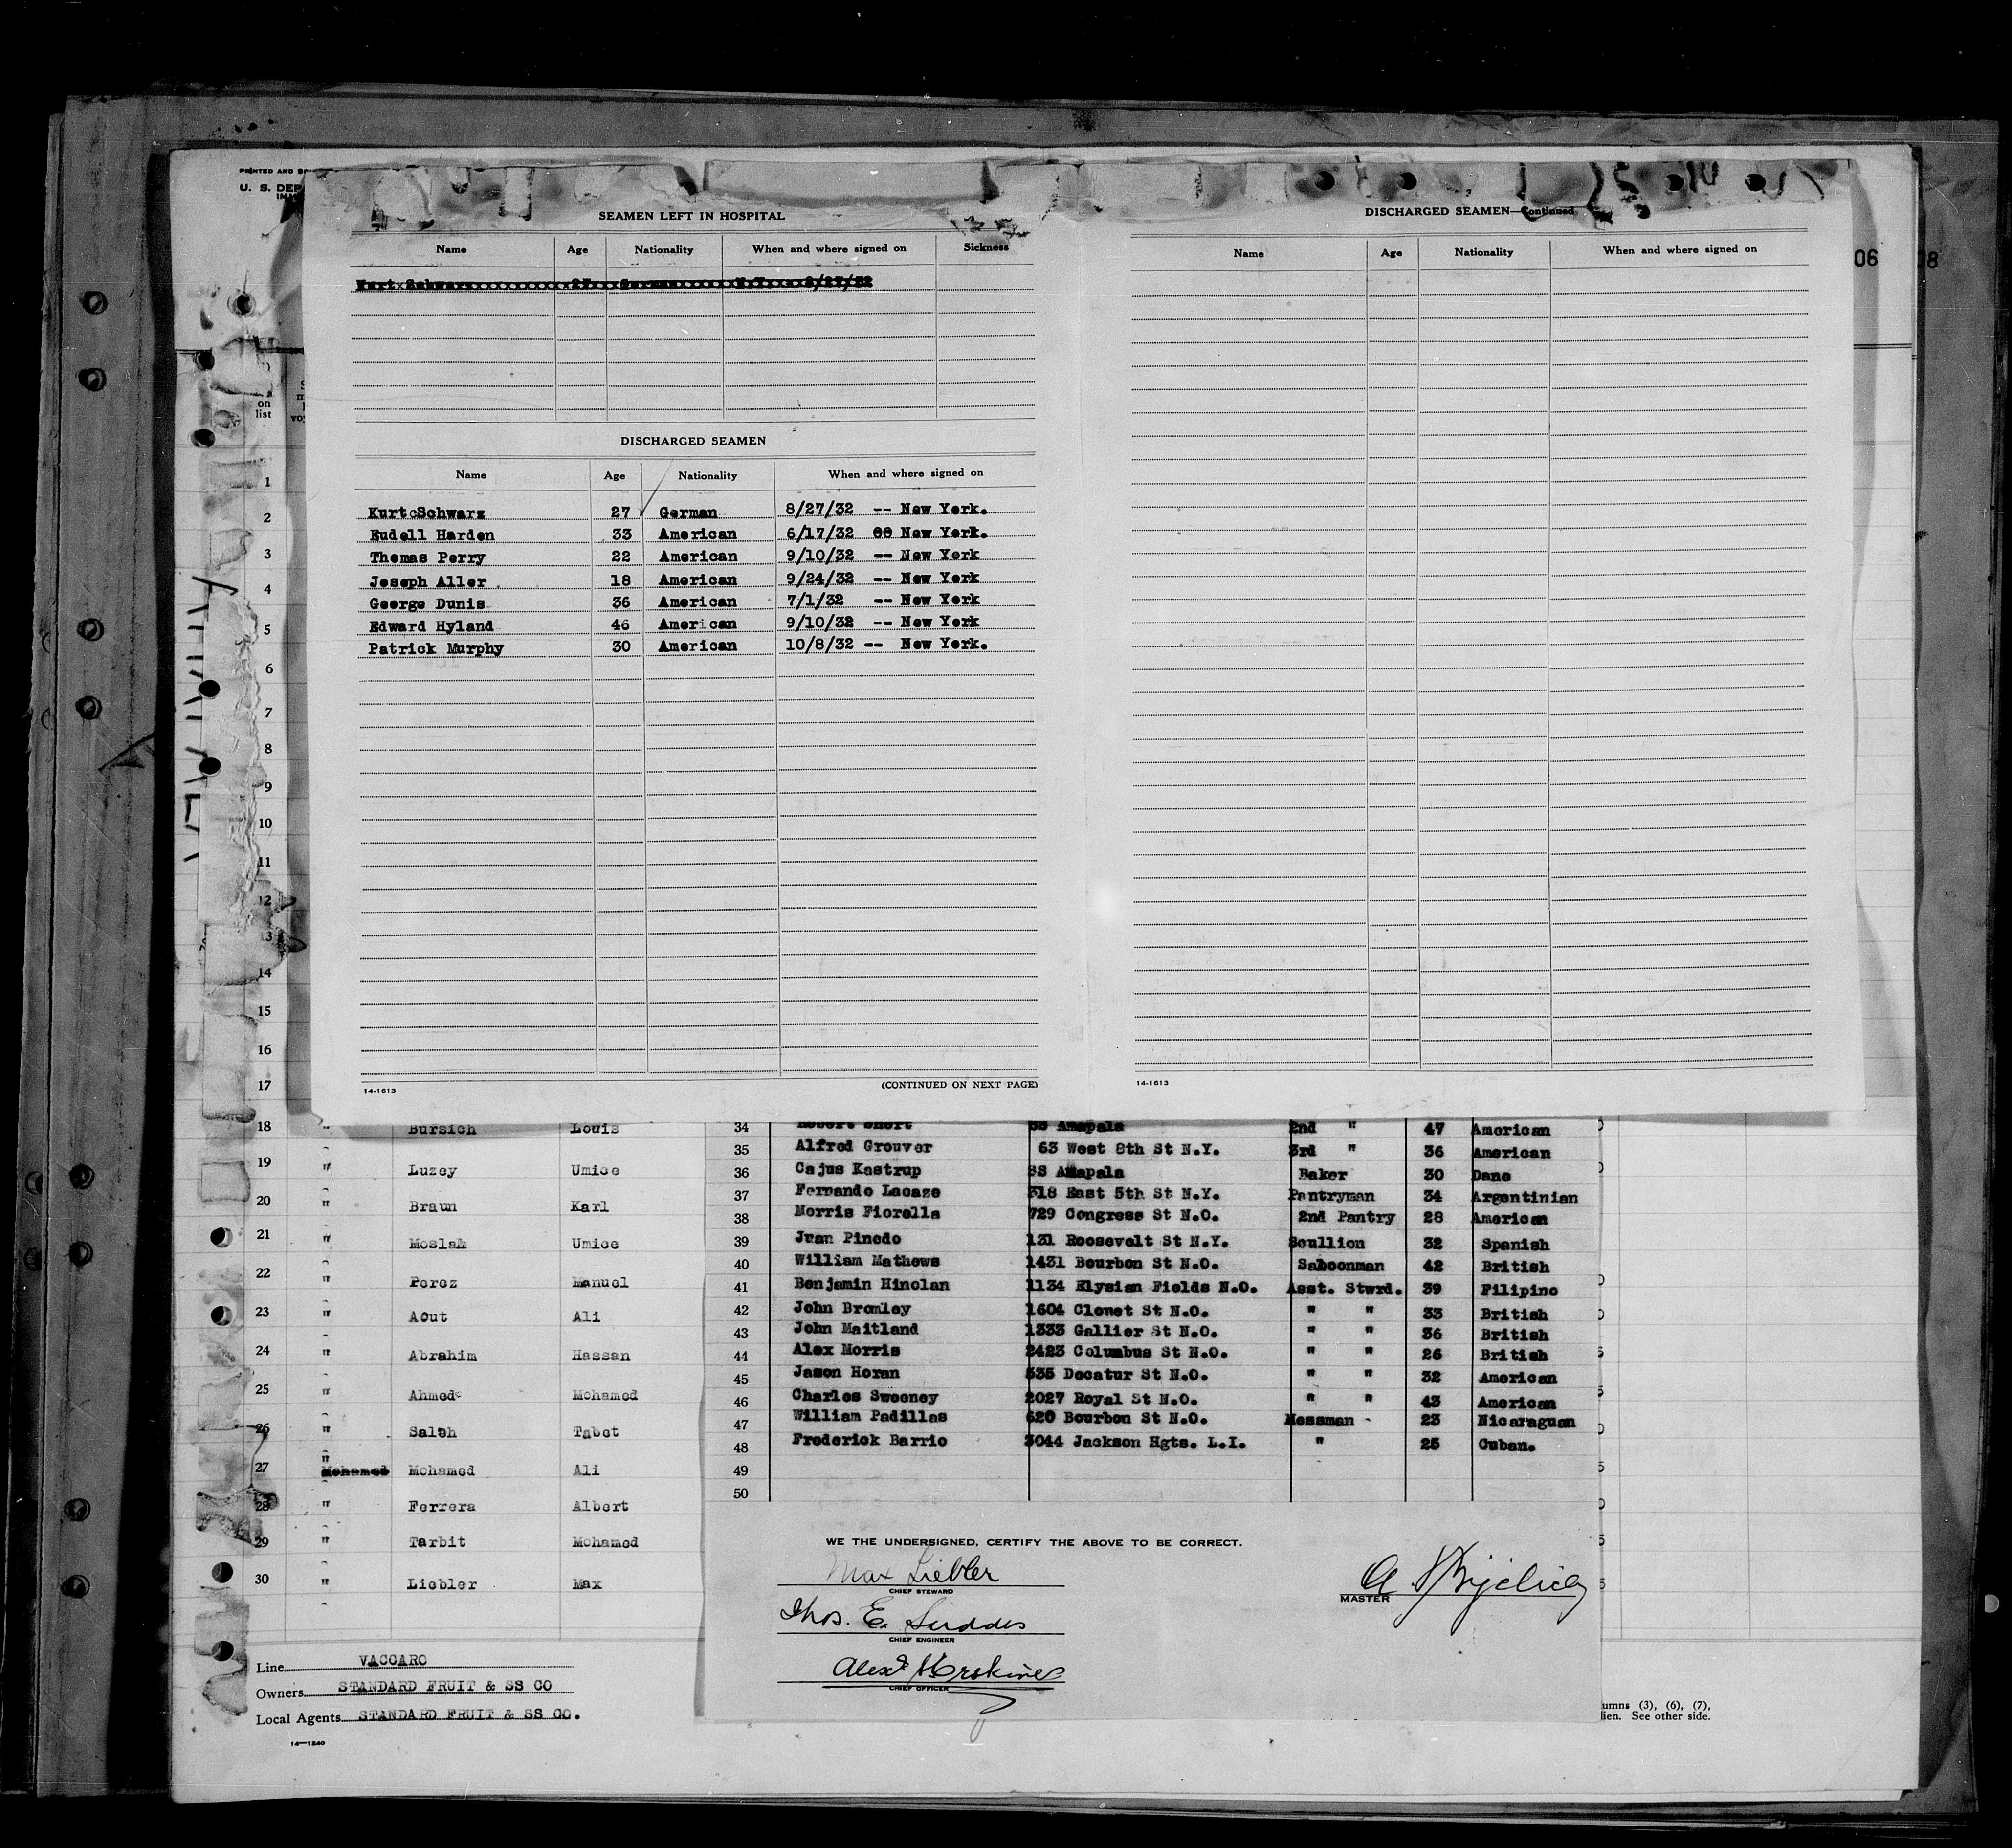 PRINTED AND
U. S. DEP
SEAMEN LEFT IN HOSPITAL
Name Age Nationality When and where signed on Sickness
Kurt Schwarz 27 German N.Y. 8/27/32
DISCHARGED SEAMEN
Name Age Nationality When and where signed on
Kurt Schwarz 27 German 8/27/32 -- New York.
Eudell Harden 33 American 6/17/32 00 New York.
Thomas Perry 22 American 9/10/32 -- New York
Joseph Aller 18 American 9/24/32 -- New York
George Dunis 36 American 7/1/32 -- New York
Edward Hyland 46 American 9/10/32 -- New York
Patrick Murphy 30 American 10/8/32 -- New York.
14-1613
(CONTINUED ON NEXT PAGE)
DISCHARGED SEAMEN—Continued
Name Age Nationality When and where signed on
14-1613
06
08
on
list
1
2
3
4
5
6
7
8
9
10
11
12
13
14
15
16
17
18 " Bursich Louis
19 " Luzey Umice
20 " Braun Karl
21 " Moslam Umice
22 " Perez Manuel
23 " Aout Ali
24 " Abrahim Hassan
25 " Ahmed Mohamed
26 " Saleh Tabet
27 " Mohamed Mohamed Ali
28 " Ferrera Albert
29 " Tarbit Mohamed
30 " Liebler Max
Line VACCARO
Owners STANDARD FRUIT & SS CO
Local Agents STANDARD FRUIT & SS CO.
14-1240
34 Robert Short SS Amapala 2nd " 47 American
35 Alfred Grouver 63 West 8th St N.Y. 3rd " 36 American
36 Cajus Kastrup SS Amapala Baker 30 Dane
37 Fernando Lacaze 318 East 5th St N.Y. Pantryman 34 Argentinian
38 Morris Fiorella 729 Congress St N.O. 2nd Pantry 28 American
39 Juan Pinedo 131 Roosevelt St N.Y. Scullion 32 Spanish
40 William Mathews 1431 Bourbon St N.O. Saloonman 42 British
41 Benjamin Hinolan 1134 Elysian Fields N.O. Asst. Stwrd. 39 Filipino
42 John Bromley 1604 Clouet St N.O. " " 33 British
43 John Maitland 1333 Gallier St N.O. " " 36 British
44 Alex Morris 2423 Columbus St N.O. " " 26 British
45 Jason Horan 535 Decatur St N.O. " " 32 American
46 Charles Sweeney 2027 Royal St N.O. " " 43 American
47 William Padillas 620 Bourbon St N.O. Messman - 23 Nicaraguan
48 Frederick Barrio 3044 Jackson Hgts. L.I. " 25 Cuban.
49
50
WE THE UNDERSIGNED, CERTIFY THE ABOVE TO BE CORRECT.
Max Liebler
CHIEF STEWARD
Thos. E.
CHIEF ENGINEER
Alexr Erskine
CHIEF OFFICER
A.
MASTER
umns (3), (6), (7),
lien. See other side.